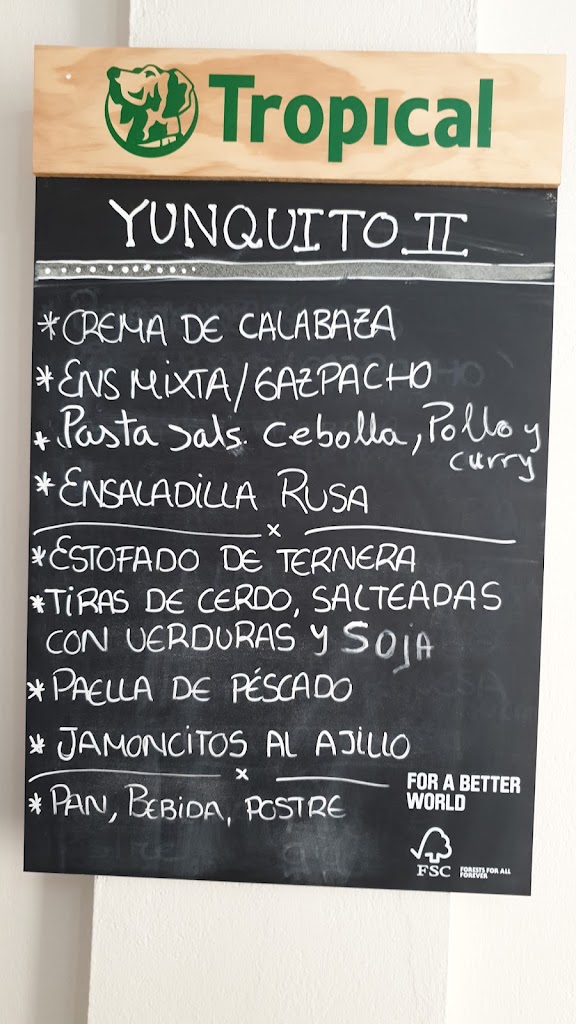 Tropical
YUNQUITO II
*CREMA DE CALABAZA
*ENS MIXTA/GAZPACHO
*Pasta sals. cebolla, Pollo y
curry
*ENSALADILLA RUSA
x
*ESTOFADO DE TERNERA
*TIRAS DE CERDO, SALTEADAS
CON VERDURAS y SOJA
*PAELLA DE PÉSCADO
*JAMONCITOS AL AJILLO
x
*PAN, BEBIDA, POSTRE
FOR A BETTER
WORLD
FSC
FORESTS FOR ALL
FOREVER